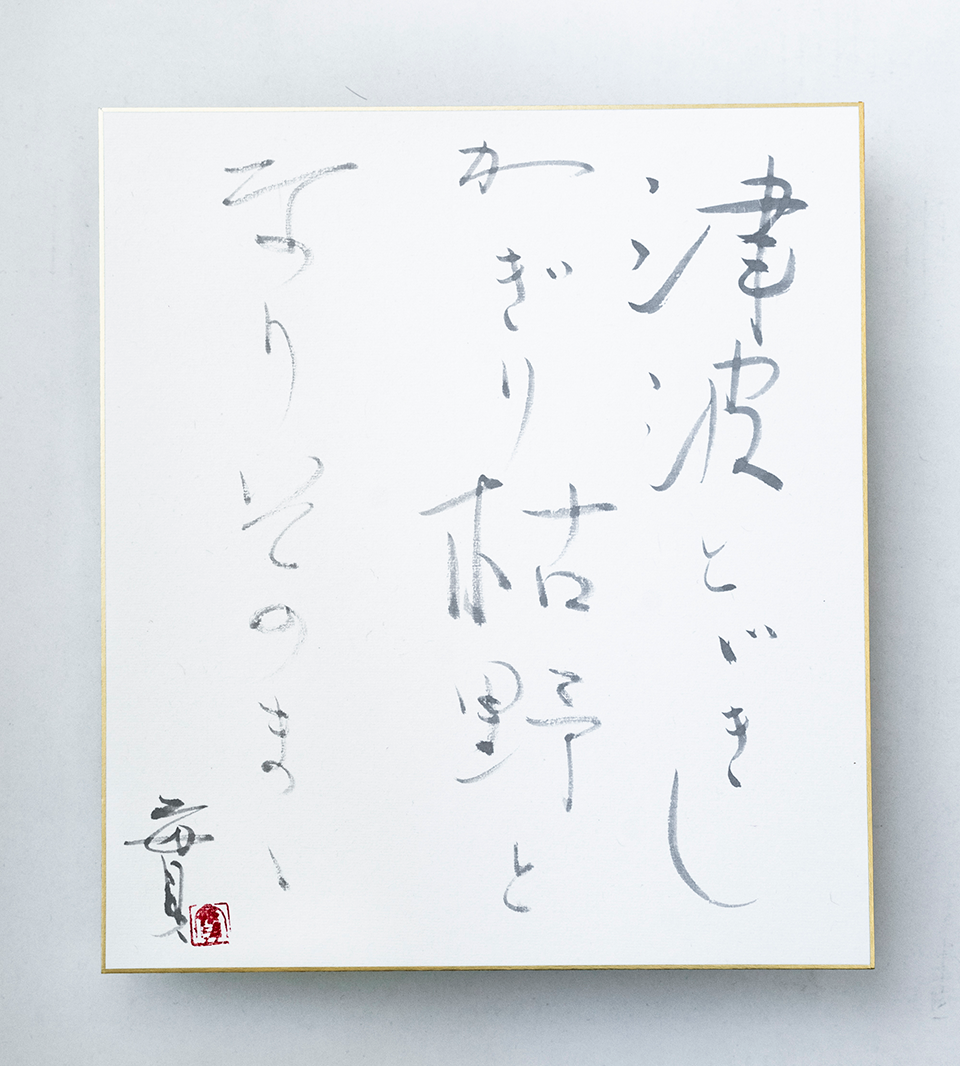 津波とゞきし
かぎり枯野と
なりそのまゝ
貫